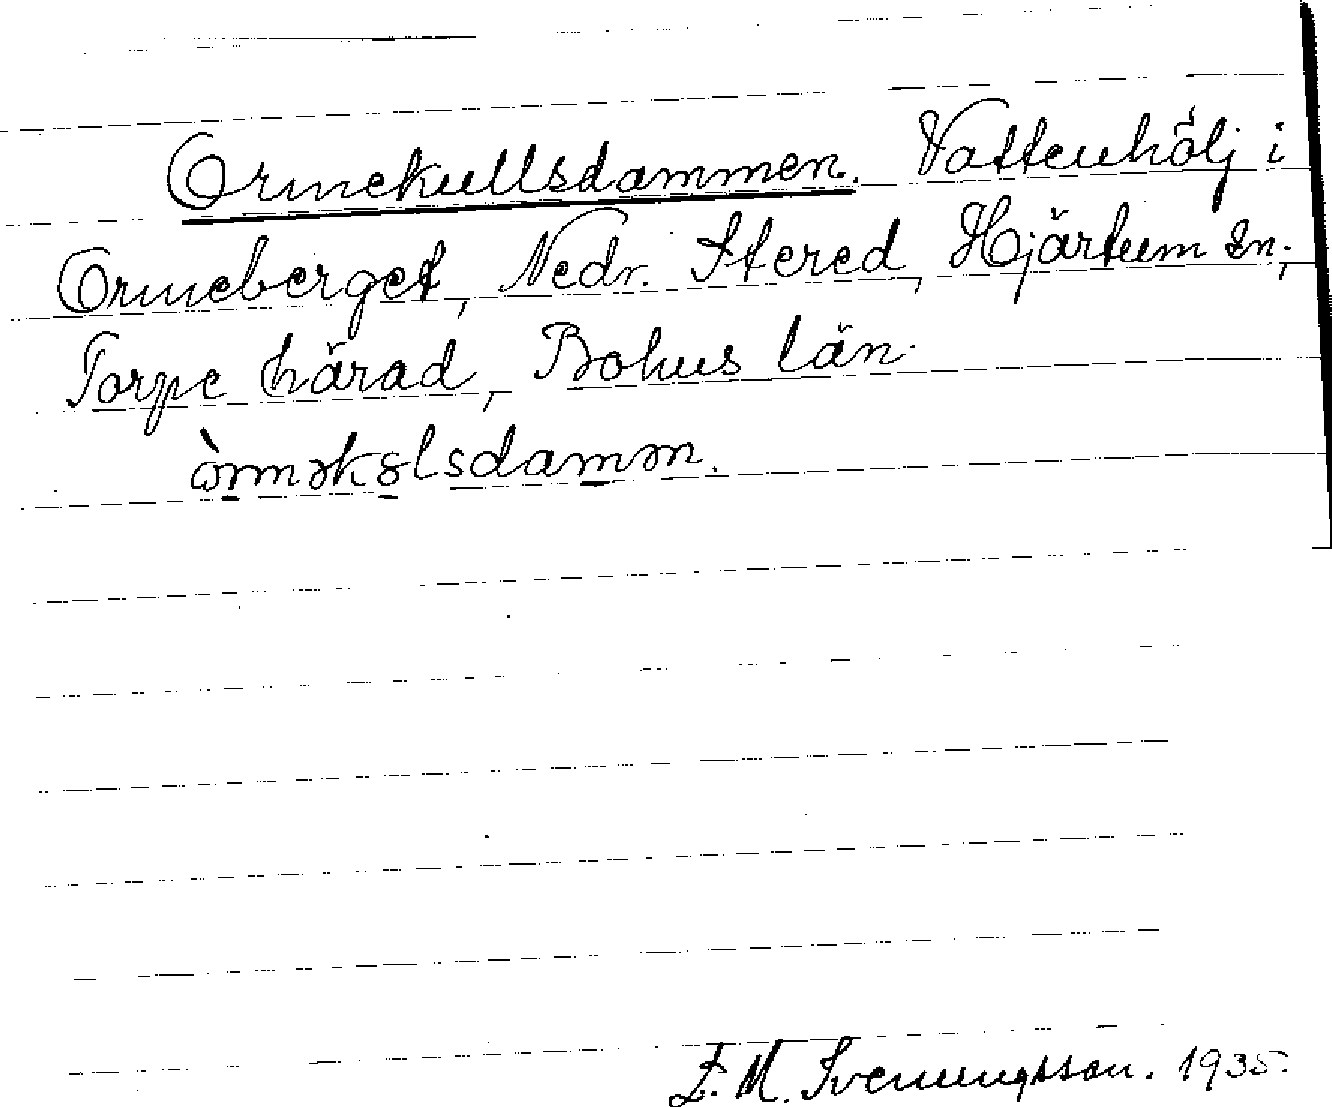 Ormekullsdammen. Vattenhölj i
Ormeberget, Nedr. Stered, Hjärtum sn;
Torpe härad, Bohus län.
òrməkɞlsdamən.
E. M. Svenungsson. 1935.